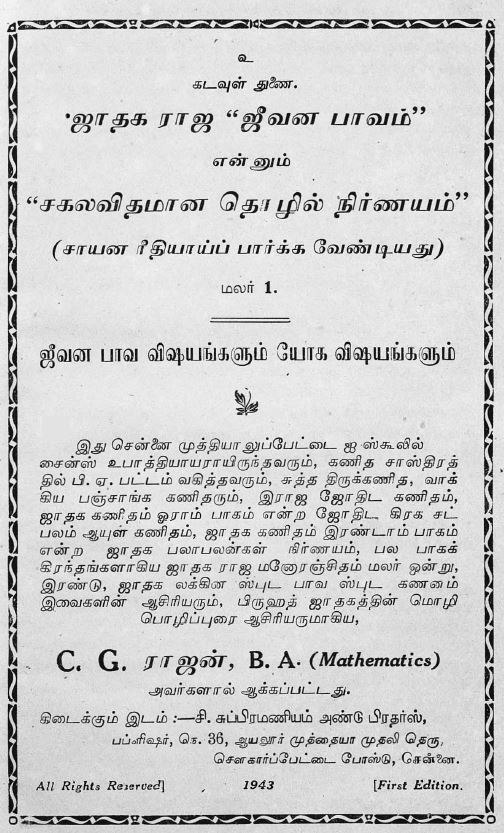 உ
கடவுள் துணை.
ஜாதக ராஜ “ஜீவன பாவம்”
என்னும்
“சகலவிதமான தொழில் நிர்ணயம்”
(சாயன ரீதியாய்ப் பார்க்க வேண்டியது)
மலர் 1.
ஜீவன பாவ விஷயங்களும் யோக விஷயங்களும்
இது சென்னை முத்தியாலுப்பேட்டை ஐ ஸ்கூலில்
சைன்ஸ் உபாத்தியாயராயிருந்தவரும், கணித சாஸ்திரத்
தில் பி. ஏ. பட்டம் வகித்தவரும், சுத்த திருக்கணித, வாக்
கிய பஞ்சாங்க கணிதரும், இராஜ ஜோதிட கணிதம்,
ஜாதக கணிதம் ஓராம் பாகம் என்ற ஜோதிட கிரக சட்
பலம் ஆயுள் கணிதம், ஜாதக கணிதம் இரண்டாம் பாகம்
என்ற ஜாதக பலாபலன்கள் நிர்ணயம், பல பாகக்
கிரந்தங்களாகிய ஜாதக ராஜ மனோரஞ்சிதம் மலர் ஒன்று,
இரண்டு, ஜாதக லக்கின ஸ்புட பாவ ஸ்புட கணனம்
இவைகளின் ஆசிரியரும், பிருஹத் ஜாதகத்தின் மொழி
பொழிப்புரை ஆசிரியருமாகிய,
C. G. ராஜன், B. A. (Mathematics)
அவர்களால் ஆக்கப்பட்டது.
கிடைக்கும் இடம் :—சி. சுப்பிரமணியம் அண்டு பிரதர்ஸ்,
பப்ளிஷர், நெ. 36, ஆயலூர் முத்தையா முதலி தெரு,
சௌகார்ப்பேட்டை போஸ்டு, சென்னை.
All Rights Reserved] 1943 [First Edition.